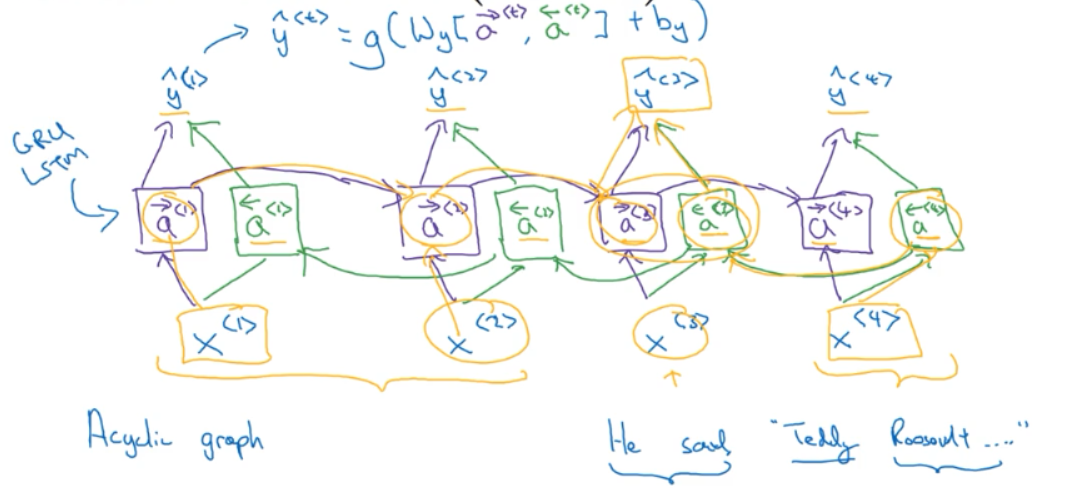 ŷ<t> = g(Wy[a→<t>, a←<t>] + by)
ŷ<1> ŷ<2> ŷ<3> ŷ<4>
GRU
LSTM
a→<1> a←<1> a→<2> a←<2> a→<3> a←<3> a→<4> a←<4>
x<1> x<2> x<3> x<4>
Acyclic graph He said, "Teddy Roosevelt ...."